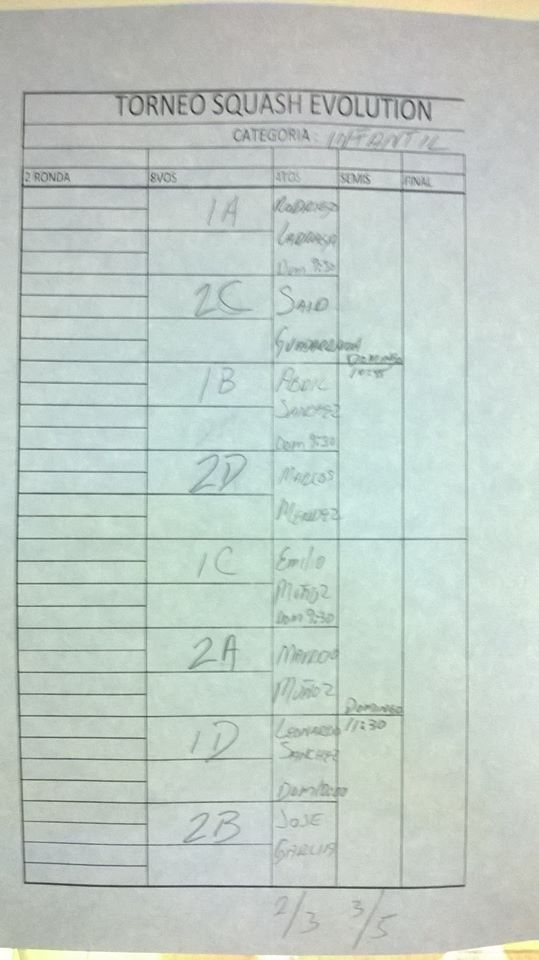 TORNEO SQUASH EVOLUTION
CATEGORIA: INFANTIL
2 RONDA 8VOS 4TOS SEMIS FINAL
1A RODRIGO
Dom 9:30
2C SAID
GUADARRAMA
DOMINGO
1B
SANCHEZ
Dom 9:30
2D MARCOS
MENDEZ
1C Emilio
MUÑOZ
Dom 9:30
2A
MUÑOZ
DOMINGO
1D LEONARDO 11:30
SANCHEZ
Dom 10:00
2B JOSE
GARCIA
2/3 3/5